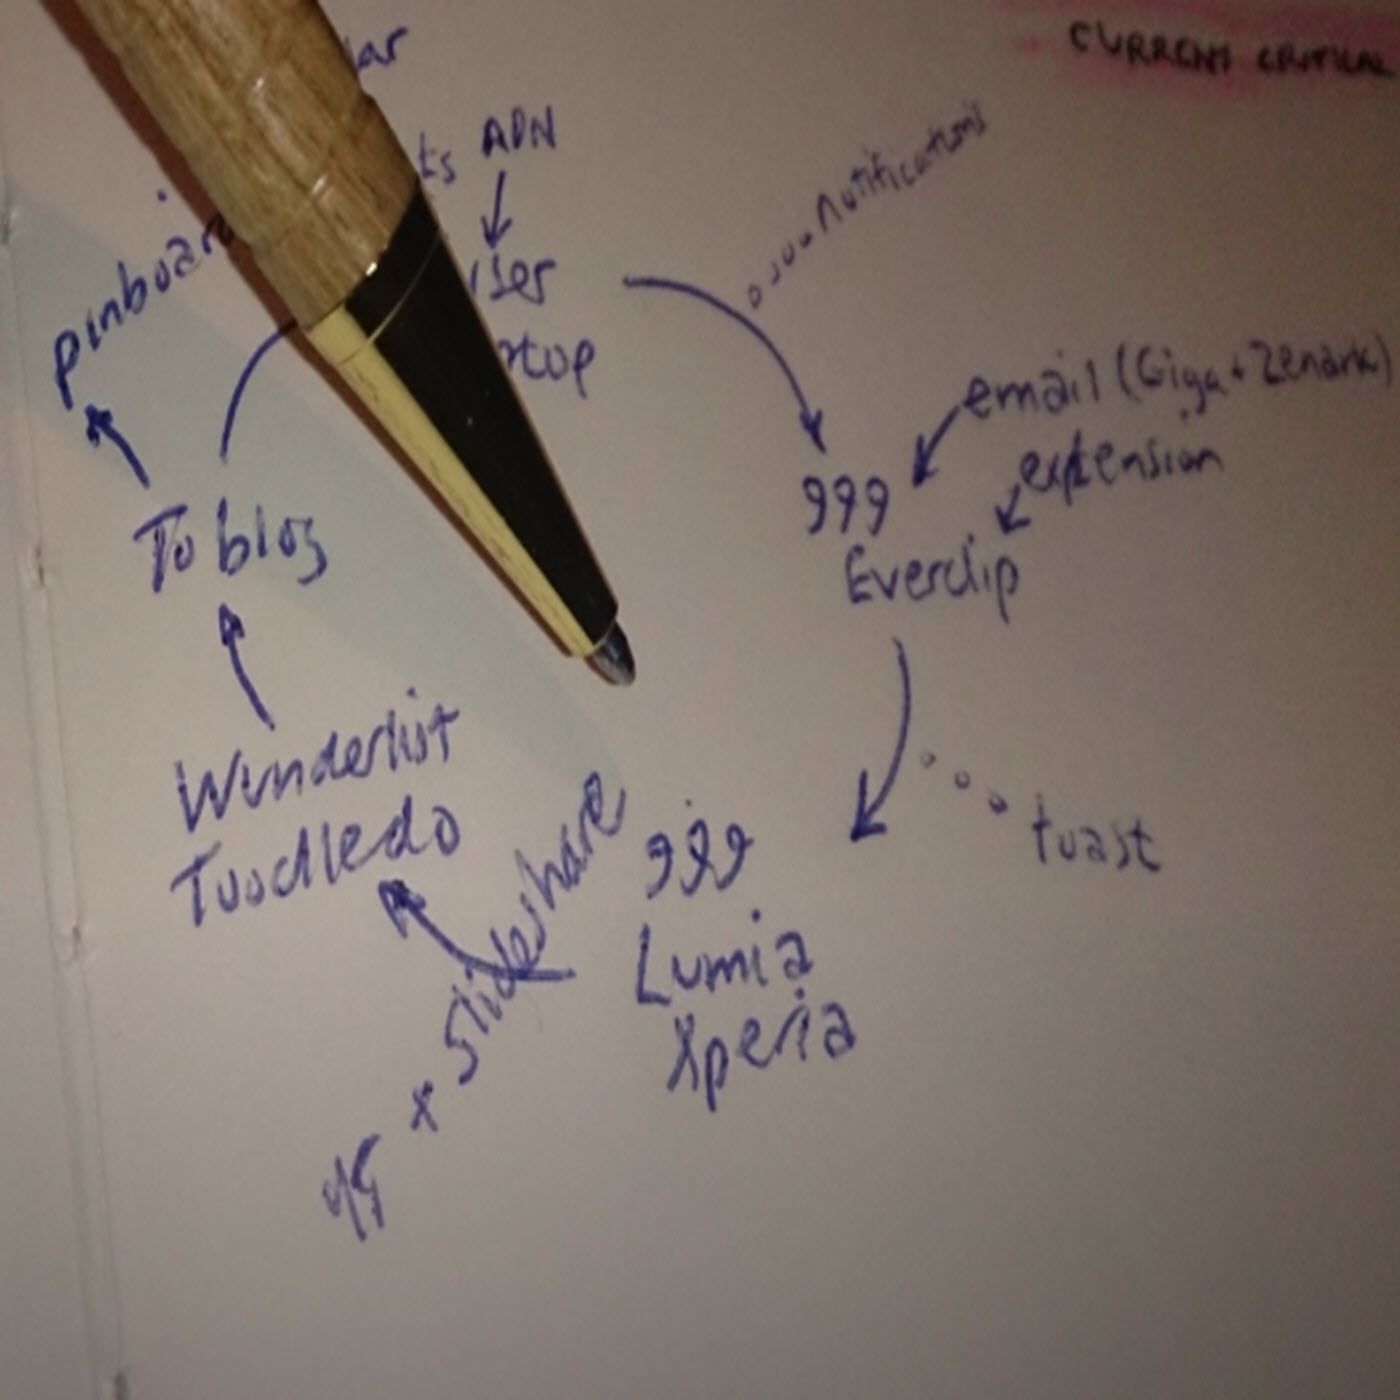 CURRENT CRITICAL
ADN
notifications
pinboard
email (Giga + Zenark)
extension
999
Everclip
To blog
Wunderlist
Toodledo
toast
999
Lumia
Xperia
45 x Slideshare